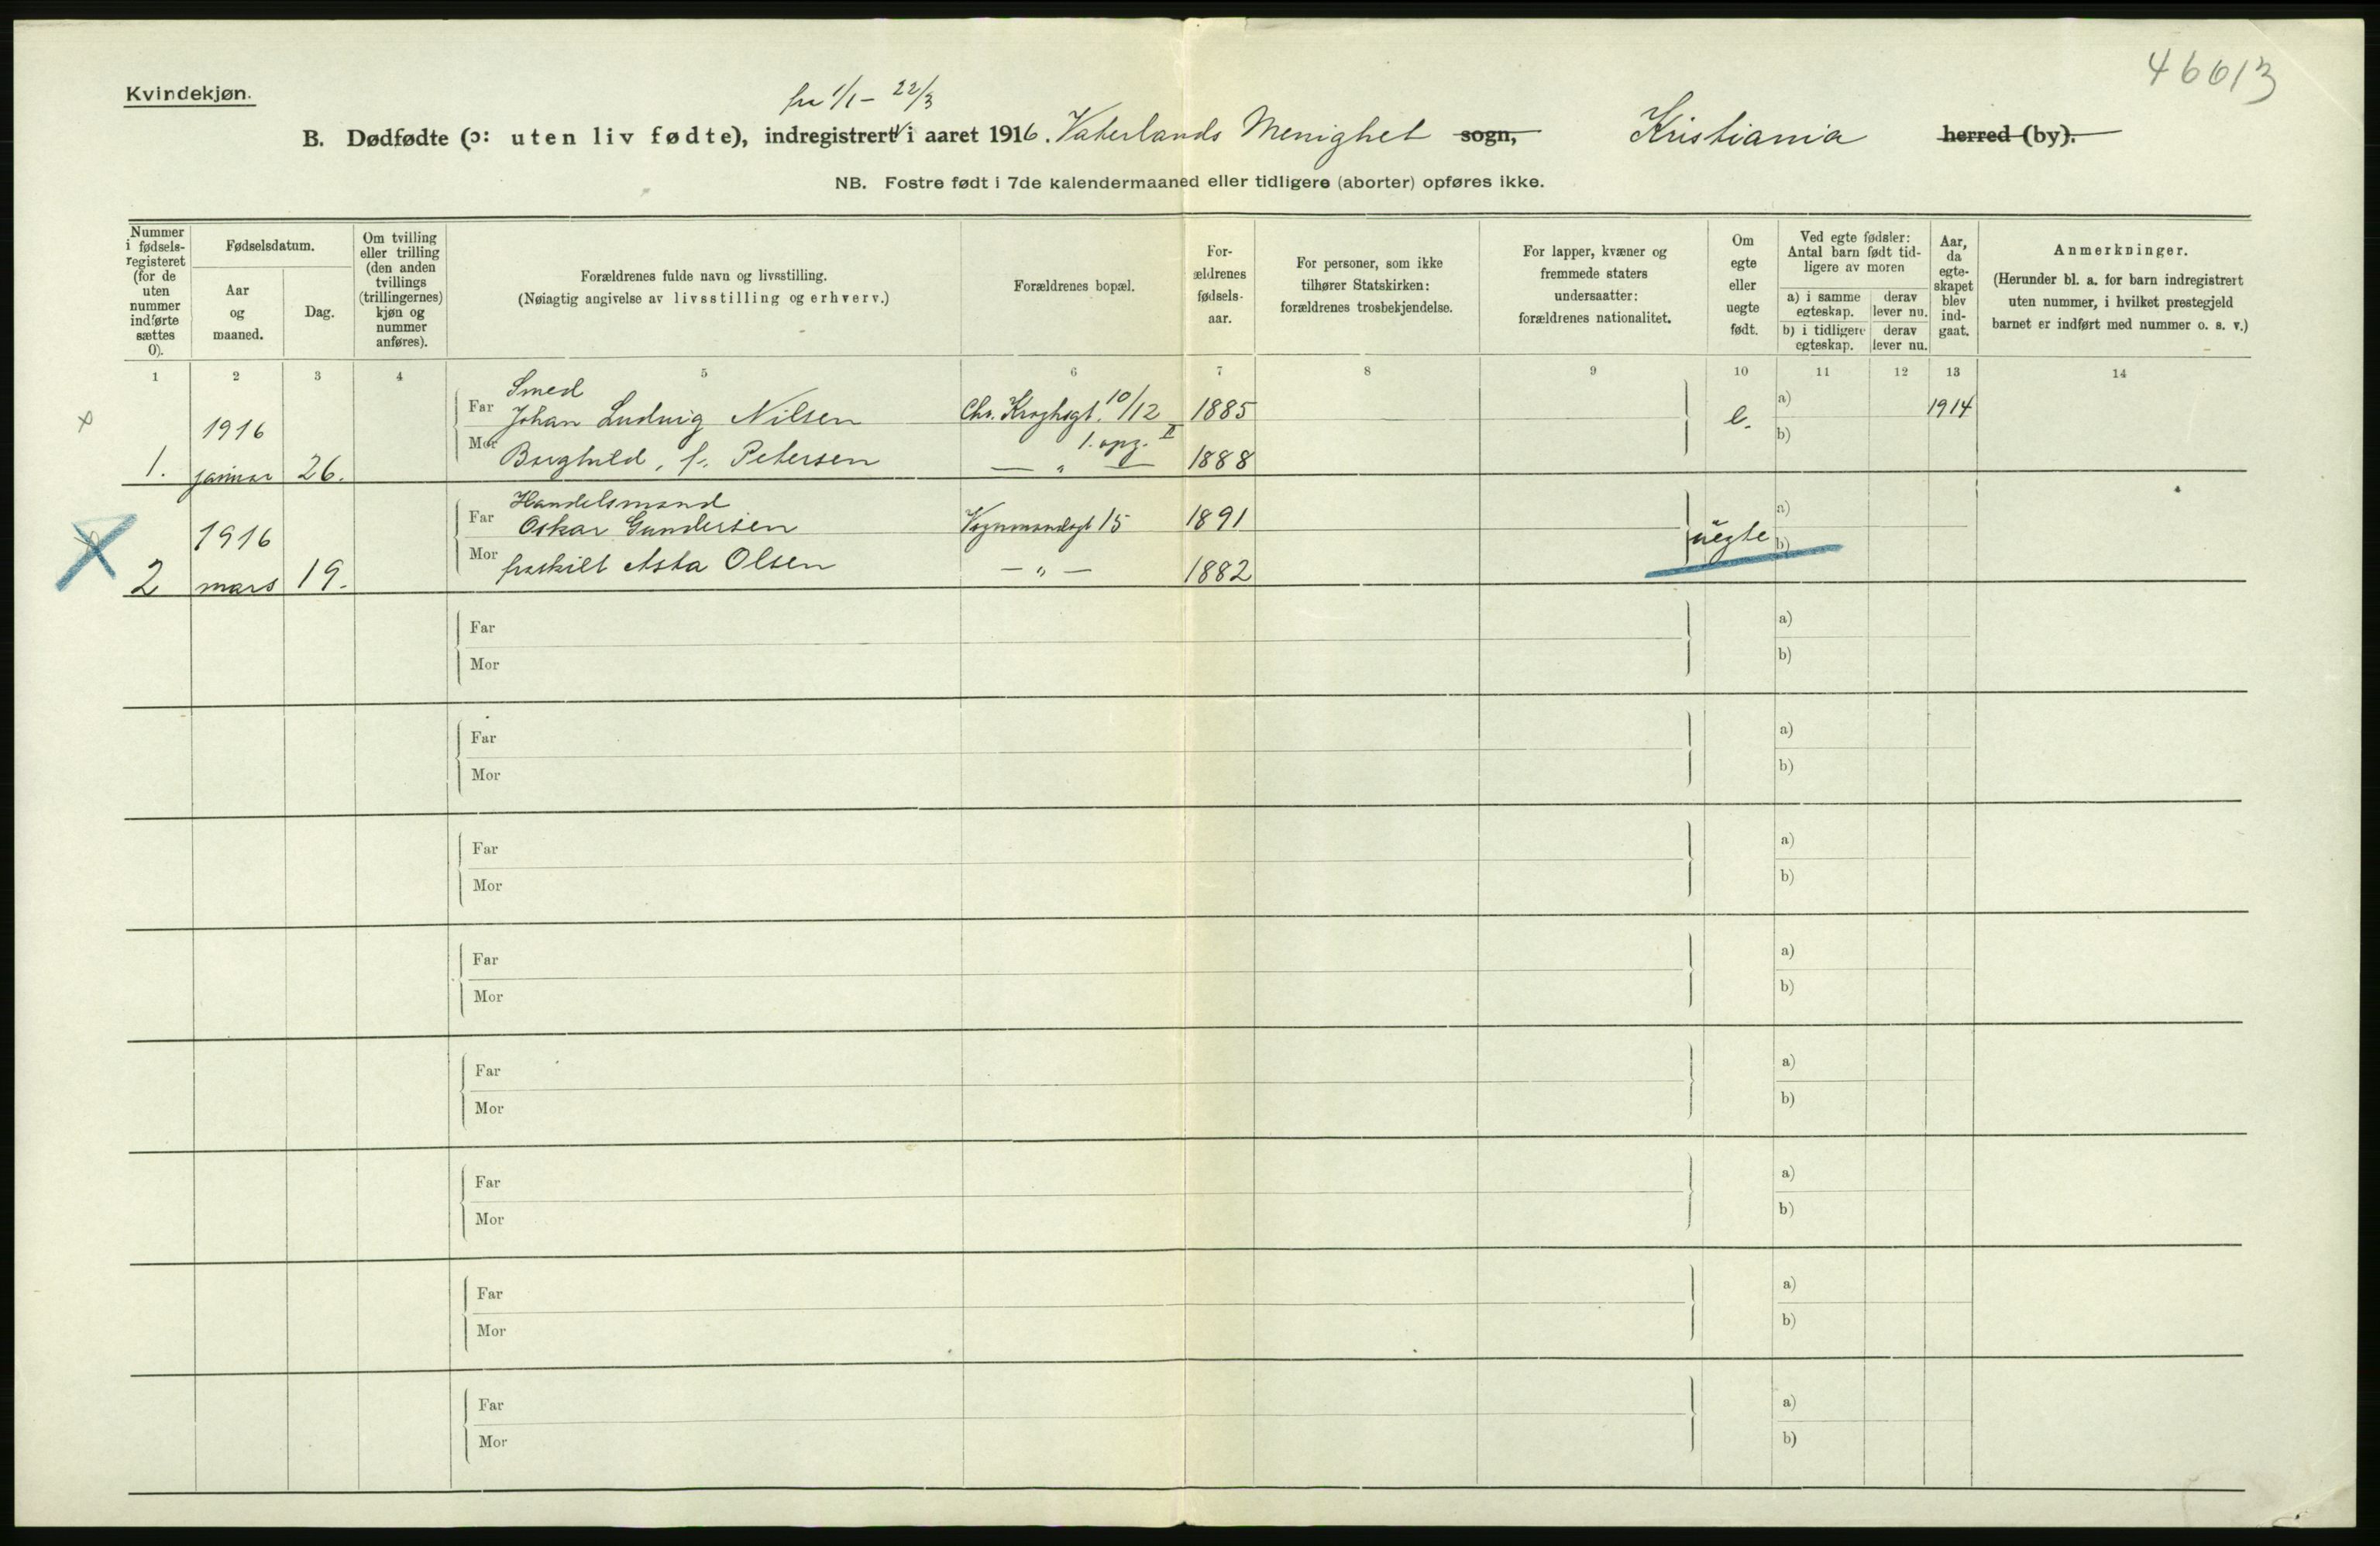 46613
Kvindekjøn.
fra 1/1 - 22/3
B. Dødfødte (ɔ: uten liv fødte), indregistrert i aaret 1916. Vaterlands Menighet sogn, Kristiania herred (by).
NB. Fostre født i 7de kalendermaaned eller tidligere (aborter) opføres ikke.
Nummer
i fødsels-
registeret
(for de
uten
nummer
indførte
sættes
0).
Fødselsdatum.
Aar
og
maaned.
Dag.
Om tvilling
eller trilling
(den anden
tvillings
(trillingernes)
kjøn og
nummer
anføres).
Forældrenes fulde navn og livsstilling.
(Nøiagtig angivelse av livsstilling og erhverv.)
Forældrenes bopæl.
For-
ældrenes
fødsels-
aar.
For personer, som ikke
tilhører Statskirken:
forældrenes trosbekjendelse.
For lapper, kvæner og
fremmede staters
undersaatter:
forældrenes nationalitet.
Om
egte
eller
uegte
født.
Ved egte fødsler:
Antal barn født tid-
ligere av moren
a) i samme
egteskap.
derav
lever nu.
b) i tidligere
egteskap.
derav
lever nu.
Aar,
da
egte-
skapet
blev
ind-
gaat.
Anmerkninger.
(Herunder bl. a. for barn indregistrert
uten nummer, i hvilket prestegjeld
barnet er indført med nummer o. s. v.)
1 2 3 4 5 6 7 8 9 10 11 12 13 14
Smed
Far Johan Ludvig Nilsen Chr. Kroghsgt. 10/12 1885 e. a) 1914
1916 1. opg. II
Mor Borghild, f. Petersen — " — 1888 b)
1. januar 26.
Handelsmand
Far Oskar Gundersen Vognmandsgt 15 1891 uegte a)
1916
Mor fraskilt Asta Olsen — " — 1882 b)
2 mars 19.
Far a)
Mor b)
Far a)
Mor b)
Far a)
Mor b)
Far a)
Mor b)
Far a)
Mor b)
Far a)
Mor b)
Far a)
Mor b)
Far a)
Mor b)